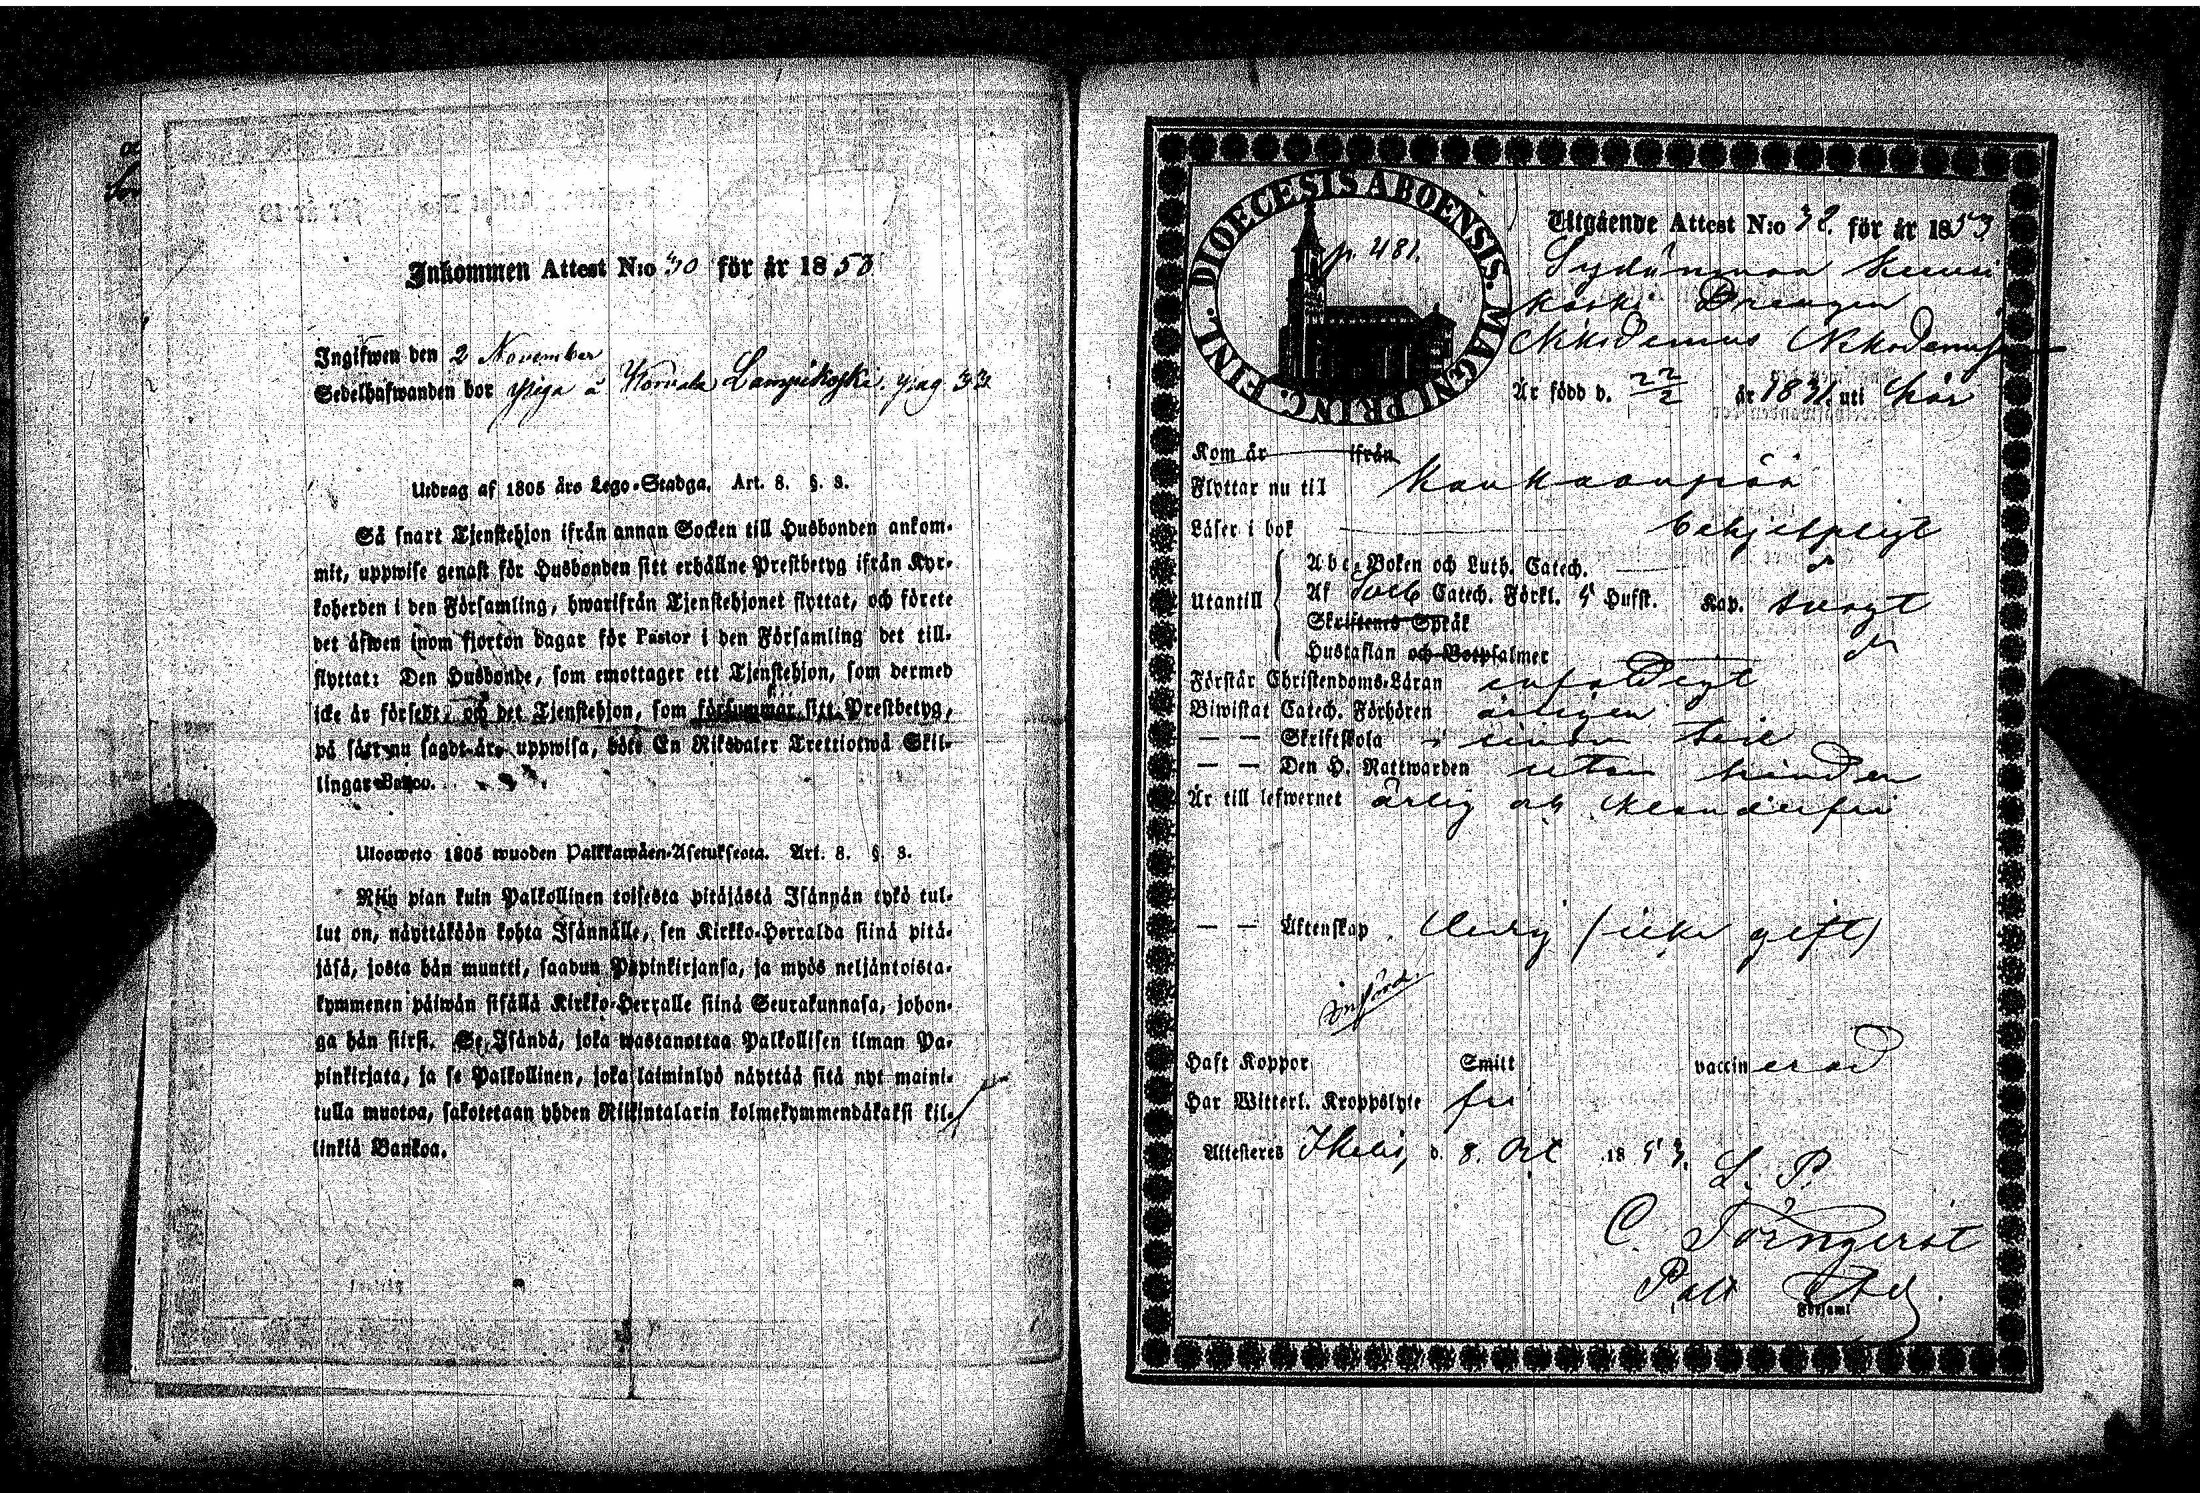 Inkommen Attest N:o 30 för år 1853
Ingifwen den 2 November
Sedelhafwanden bor piga å Lampikoski. pag 33
Utdrag af 1805 års Lego-Stadga. Art. 8. §. 3.
Så snart Tjenstehjon ifrån annan Socken till Husbonden ankom-
mit, uppwise genast för Husbonden sitt erhållne Prestbetyg ifrån Kyr-
koherden i den Församling, hwarifrån Tjenstehjonet flyttat, och förete
det äfwen inom fjorton dagar för Pastor i den Församling det till-
flyttat: Den Husbonde, som emottager ett Tjenstehjon, som dermed
icke är försedt, och det Tjenstehjon, som försummar sitt Prestbetyg,
på sätt nu sagdt är, uppwisa, böte En Riksdaler Trettiotwå Skil-
lingar Banco.
Ulosweto 1805 wuoden Palkkawäen-Asetuksesta. Art. 8. §. 3.
Niin pian kuin Palkollinen toisesta pitäjästä Isännän tykö tul-
lut on, näyttäköön kohta Isännälle, sen Kirkko-Herralda siinä pitä-
jäsä, josta hän muutti, saadun Papinkirjansa, ja myös neljäntoista-
kymmenen päiwän sisällä Kirkko-Herralle siinä Seurakunnasa, johon-
ga hän siirsi. Se Isändä, joka wastanottaa Palkollisen ilman Pa-
pinkirjata, ja se Palkollinen, joka laiminlyö näyttää sitä nyt maini-
tulla muotoa, sakotetaan yhden Riikintalarin kolmekymmendäkaksi kil-
linkiä Bankoa.
DIOECESIS ABOENSIS. MAGNI PRINC. FINL.
p. 481.
Utgående Attest N:o 32. för år 1853
Sydänmaa Kuusi
koski Drengen
Nikodemus Nikodemusson
Är född d. 22/2 år 1831. uti här
Kom år ifrån
Flyttar nu til Kankaanpää
Läser i bok behjelpligt
Utantill
Abc-Boken och Luth. Catech.
Af Sveb Catech. Förkl. 5 Hufst. Kap. svagt
Skriftenes Språk
Hustaflan och Botpsalmer
Förstår Christendoms-Läran enfaldigt
Biwistat Catech. Förhören årligen
— — Skriftskola
— — Den H. Nattwarden utan hinder
Är till lefwernet ärlig och klanderfri
— — Äktenskap ledig (icke gift)
införd
Haft Koppor Smitt vaccinerad
Har Witterl. Kroppslyte fri
Attesteras Ikalis, d. 8. Oct 1853.
L. P.
C. Törnqvist
Past
Församl